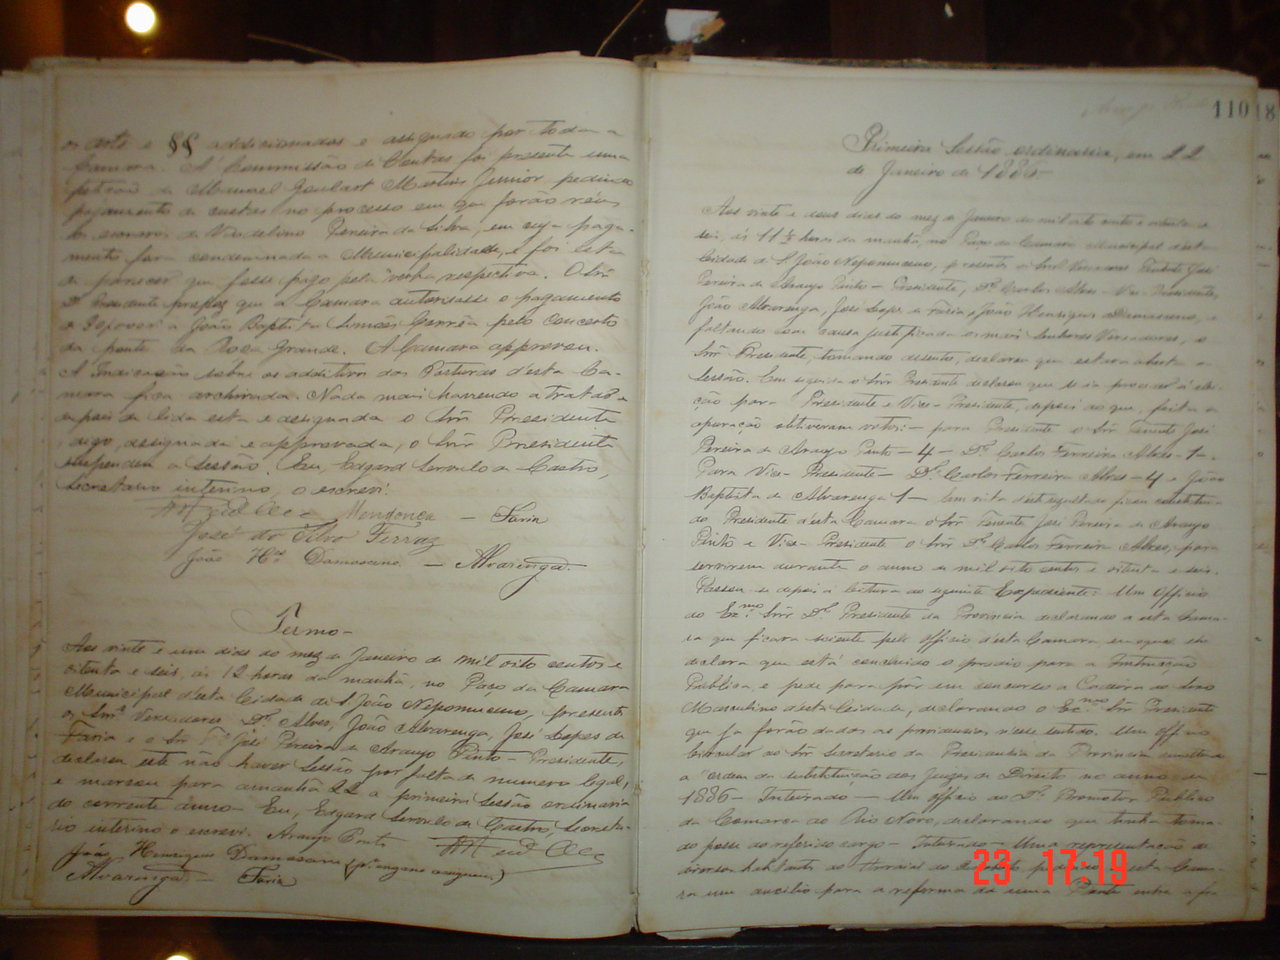 os arts e §§ addicionados e assignado por toda a
Camara. A Commissão de Contas foi presente uma
petição de Manoel Goulart Martins Junior pedindo
pagamento de custas no processo em que forão réos
os escravos de Vindelino Pereira da Silva, em cuja paga-
mento fora condemnada a Municipalidade, e foi esta
de parecer que fosse pago pela verba respectiva. O Snr
Dr Presidente propoz que a Camara autorisasse o pagamento
a João Baptista Simões Corrêa pelo concerto
da ponte da Roça Grande. A Camara approvou.
A Indicação sobre os additivos das Posturas d'esta Ca-
mara fica archivada. Nada mais havendo a tratar e
depois de lida esta e designada o Snr Presidente
digo, designada e approvada, o Snr Presidente
suspendeu a Sessão. Eu, Edgard Servulo de Castro,
Secretario interino, o escrevi.
Mendonça — Faria
José da Silva Ferraz
João Hes Damasceno — Alvarenga
Termo
Aos vinte e um dias do mez de Janeiro de mil oito centos e
oitenta e seis, ás 12 horas da manhã, no Paço da Camara
Municipal d'esta Cidade de S João Nepomuceno, presentes
os Snrs Vereadores Dr Alves, João Alvarenga, José Lopes de
Faria e o Snr Te José Pereira de Araujo Pinto - Presidente,
declarou este não haver Sessão por falta de numero legal,
e marcou para amanhã 22 a primeira Sessão ordinaria
do corrente anno. Eu, Edgard Servulo de Castro, Secreta-
rio interino o escrevi. Araujo Pinto
João Henriques Damasceno (pr engano assignou)
Alvarenga — Faria
110
18
Primeira Sessão ordinaria, em 22
de Janeiro de 1886
Aos vinte e dous dias do mez de Janeiro de mil oito centos e oitenta e
seis, ás 11 ½ horas da manhã, no Paço da Camara Municipal d'esta
Cidade de S João Nepomuceno, presentes os Snrs Vereadores Tenente José
Pereira de Araujo Pinto - Presidente, Dr Carlos Alves - Vice-Presidente,
João Alvarenga, José Lopes de Faria e João Henriques Damasceno, e
faltando sem causa justificada os mais Senhores Vereadores, o
Snr Presidente, tomando assento, declarou que estava aberta a
Sessão. Em seguida o Snr Presidente declarou que se ia proceder á elei-
ção para Presidente e Vice-Presidente, depois do que, feita a
apuração obtiverão votos: - para Presidente o Snr Tenente José
Pereira de Araujo Pinto - 4 - Dr Carlos Ferreira Alves - 1 -
Para Vice-Presidente - Dr Carlos Ferreira Alves - 4 e João
Baptista de Alvarenga 1 - Em vista d'este resultado ficou constitui-
do Presidente d'esta Camara o Snr Tenente José Pereira de Araujo
Pinto e Vice-Presidente o Snr Dr Carlos Ferreira Alves, para
servirem durante o anno de mil oito centos e oitenta e seis.
Passou-se depois a leitura do seguinte Expediente: Um Officio
do Exmo Snr Dr Presidente da Provincia declarando a esta Cama-
ra que ficara sciente pelo Officio d'esta Camara, em que
declara que está concluido o predio para a Instrucção
Publica, e pede para pôr em concurso a Cadeira do Sexo
Masculino d'esta Cidade, declarando o Exmo Snr Presidente
que já forão dadas as providencias n'esse sentido. Um Officio
Circular do Snr Secretario da Presidencia da Provincia
a ordem da substituição dos Juizes de Direito no anno de
1886 - Inteirado - Um Officio do Dr Promotor Publico
da Comarca do Rio Novo, declarando que tinha toma-
do posse do referido cargo - Inteirado - Uma representação de
diversos habitantes do Arraial do a esta Cama-
ra um auxilio para a reforma de uma Ponte entre a fa
23 17:19